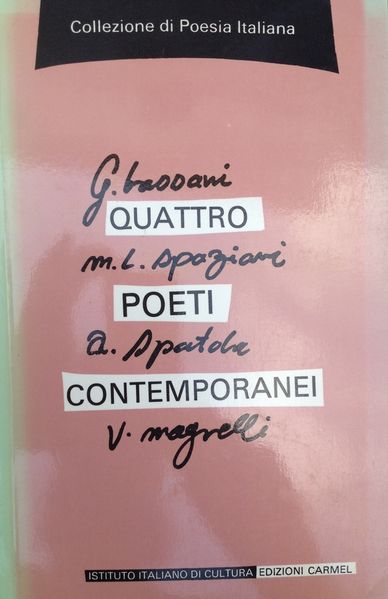 Collezione di Poesia Italiana
G. bassani
QUATTRO
m. L. spaziani
POETI
a. Spatola
CONTEMPORANEI
V. magrelli
ISTITUTO ITALIANO DI CULTURA EDIZIONI CARMEL